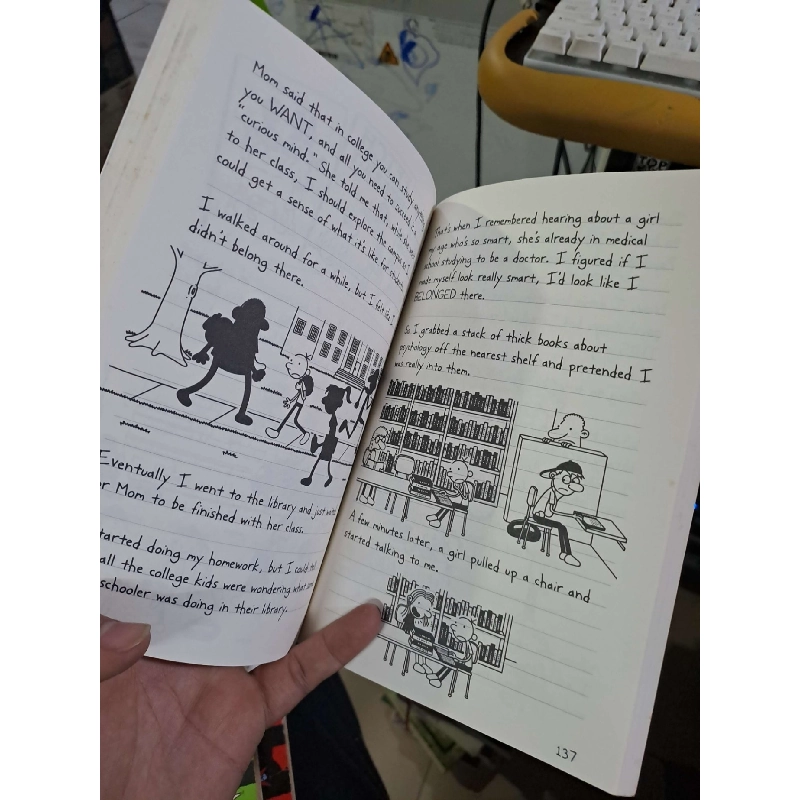 Mom said that in college you can study anything
you WANT, and all you need to succeed is a
"curious mind." She told me that while she
to her class, I should explore the campus so I
could get a sense of what it's like for
I walked around for a while, but I felt like I
didn't belong there.
Eventually I went to the library and just
Mom to be finished with her class.
started doing my homework, but I could
all the college kids were wondering what
schooler was doing in their library.
That's when I remembered hearing about a girl
my age who's so smart, she's already in medical
school studying to be a doctor. I figured if I
made myself look really smart, I'd look like I
BELONGED there.
So I grabbed a stack of thick books about
psychology off the nearest shelf and pretended I
was really into them.
A few minutes later, a girl pulled up a chair and
started talking to me.
137
TOP